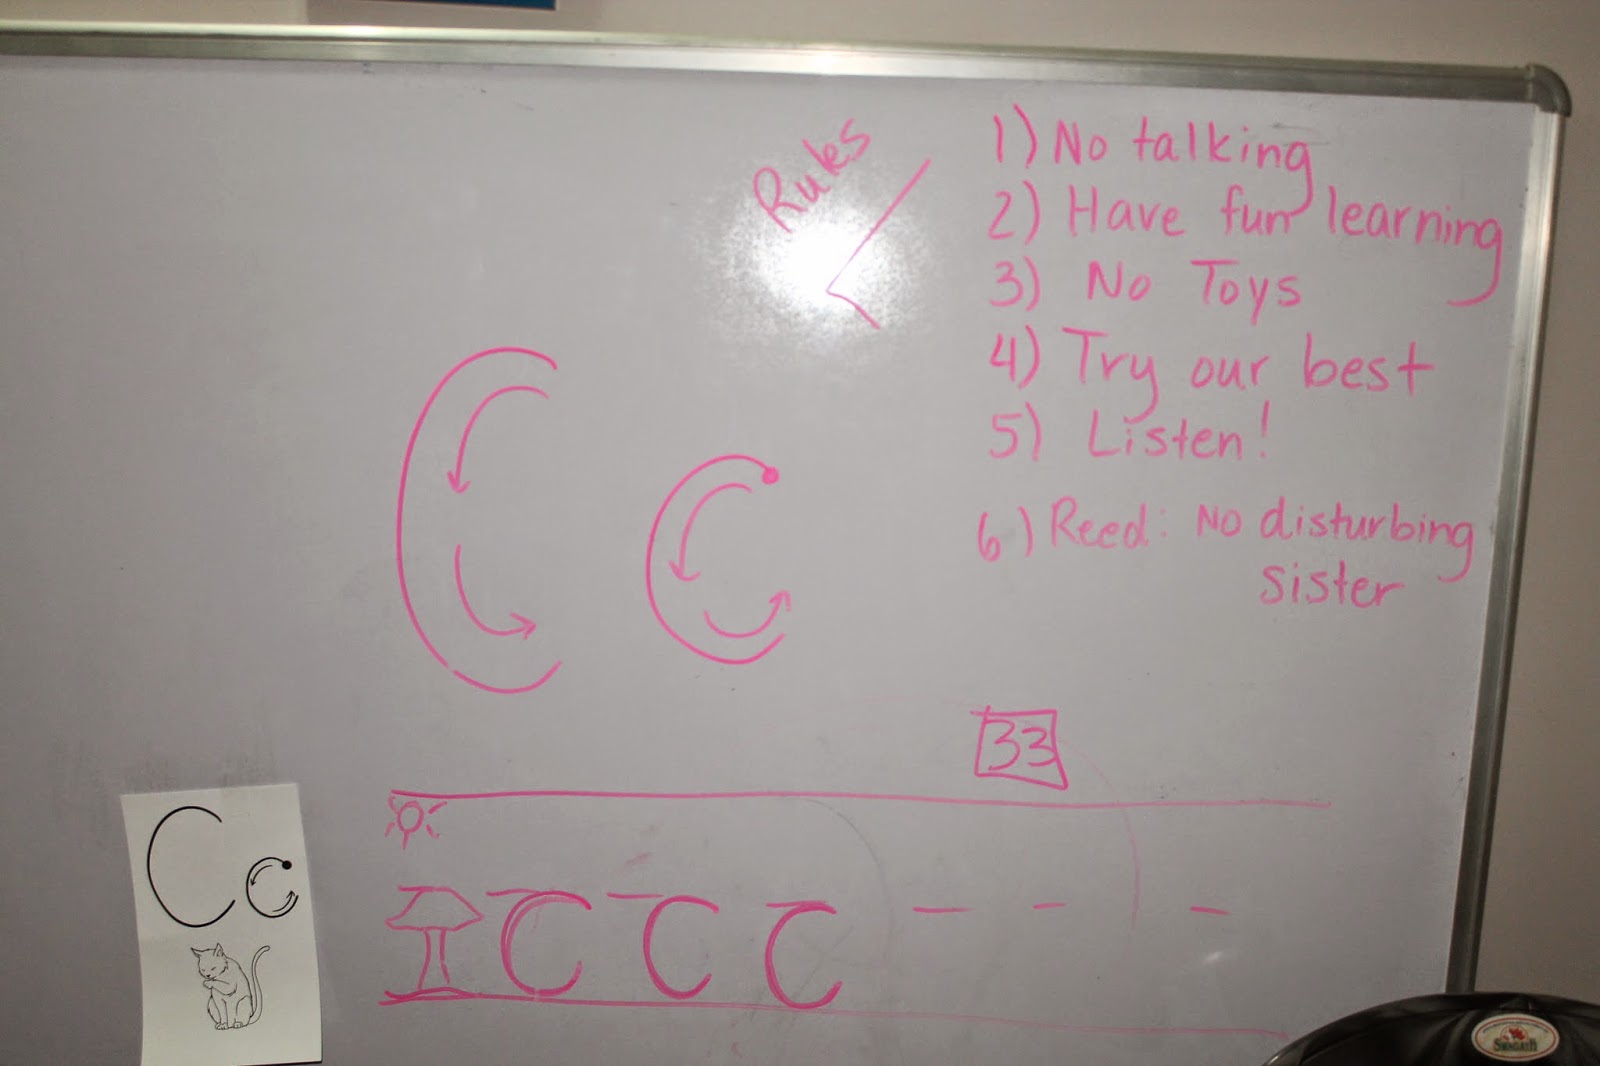 Rules
1) No talking
2) Have fun learning
3) No Toys
4) Try our best
5) Listen!
6) Reed: No disturbing
sister
C c
33
C C C
C c
SWAGATH